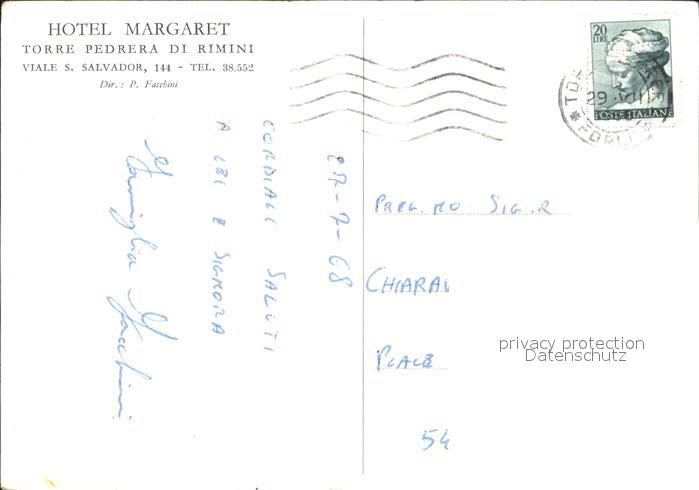 HOTEL MARGARET
TORRE PEDRERA DI RIMINI
VIALE S. SALVADOR, 144 - TEL. 38.552
Dir.: P. Facchini
27-7-68
CORDIALI SALUTI
A LEI E SIGNORA
Famiglia Facchini
20
LIRE
POSTE ITALIANE
29 . VII
FORLI
PREG.MO SIG.R
CHIARAI
PLACE
54
privacy protection
Datenschutz